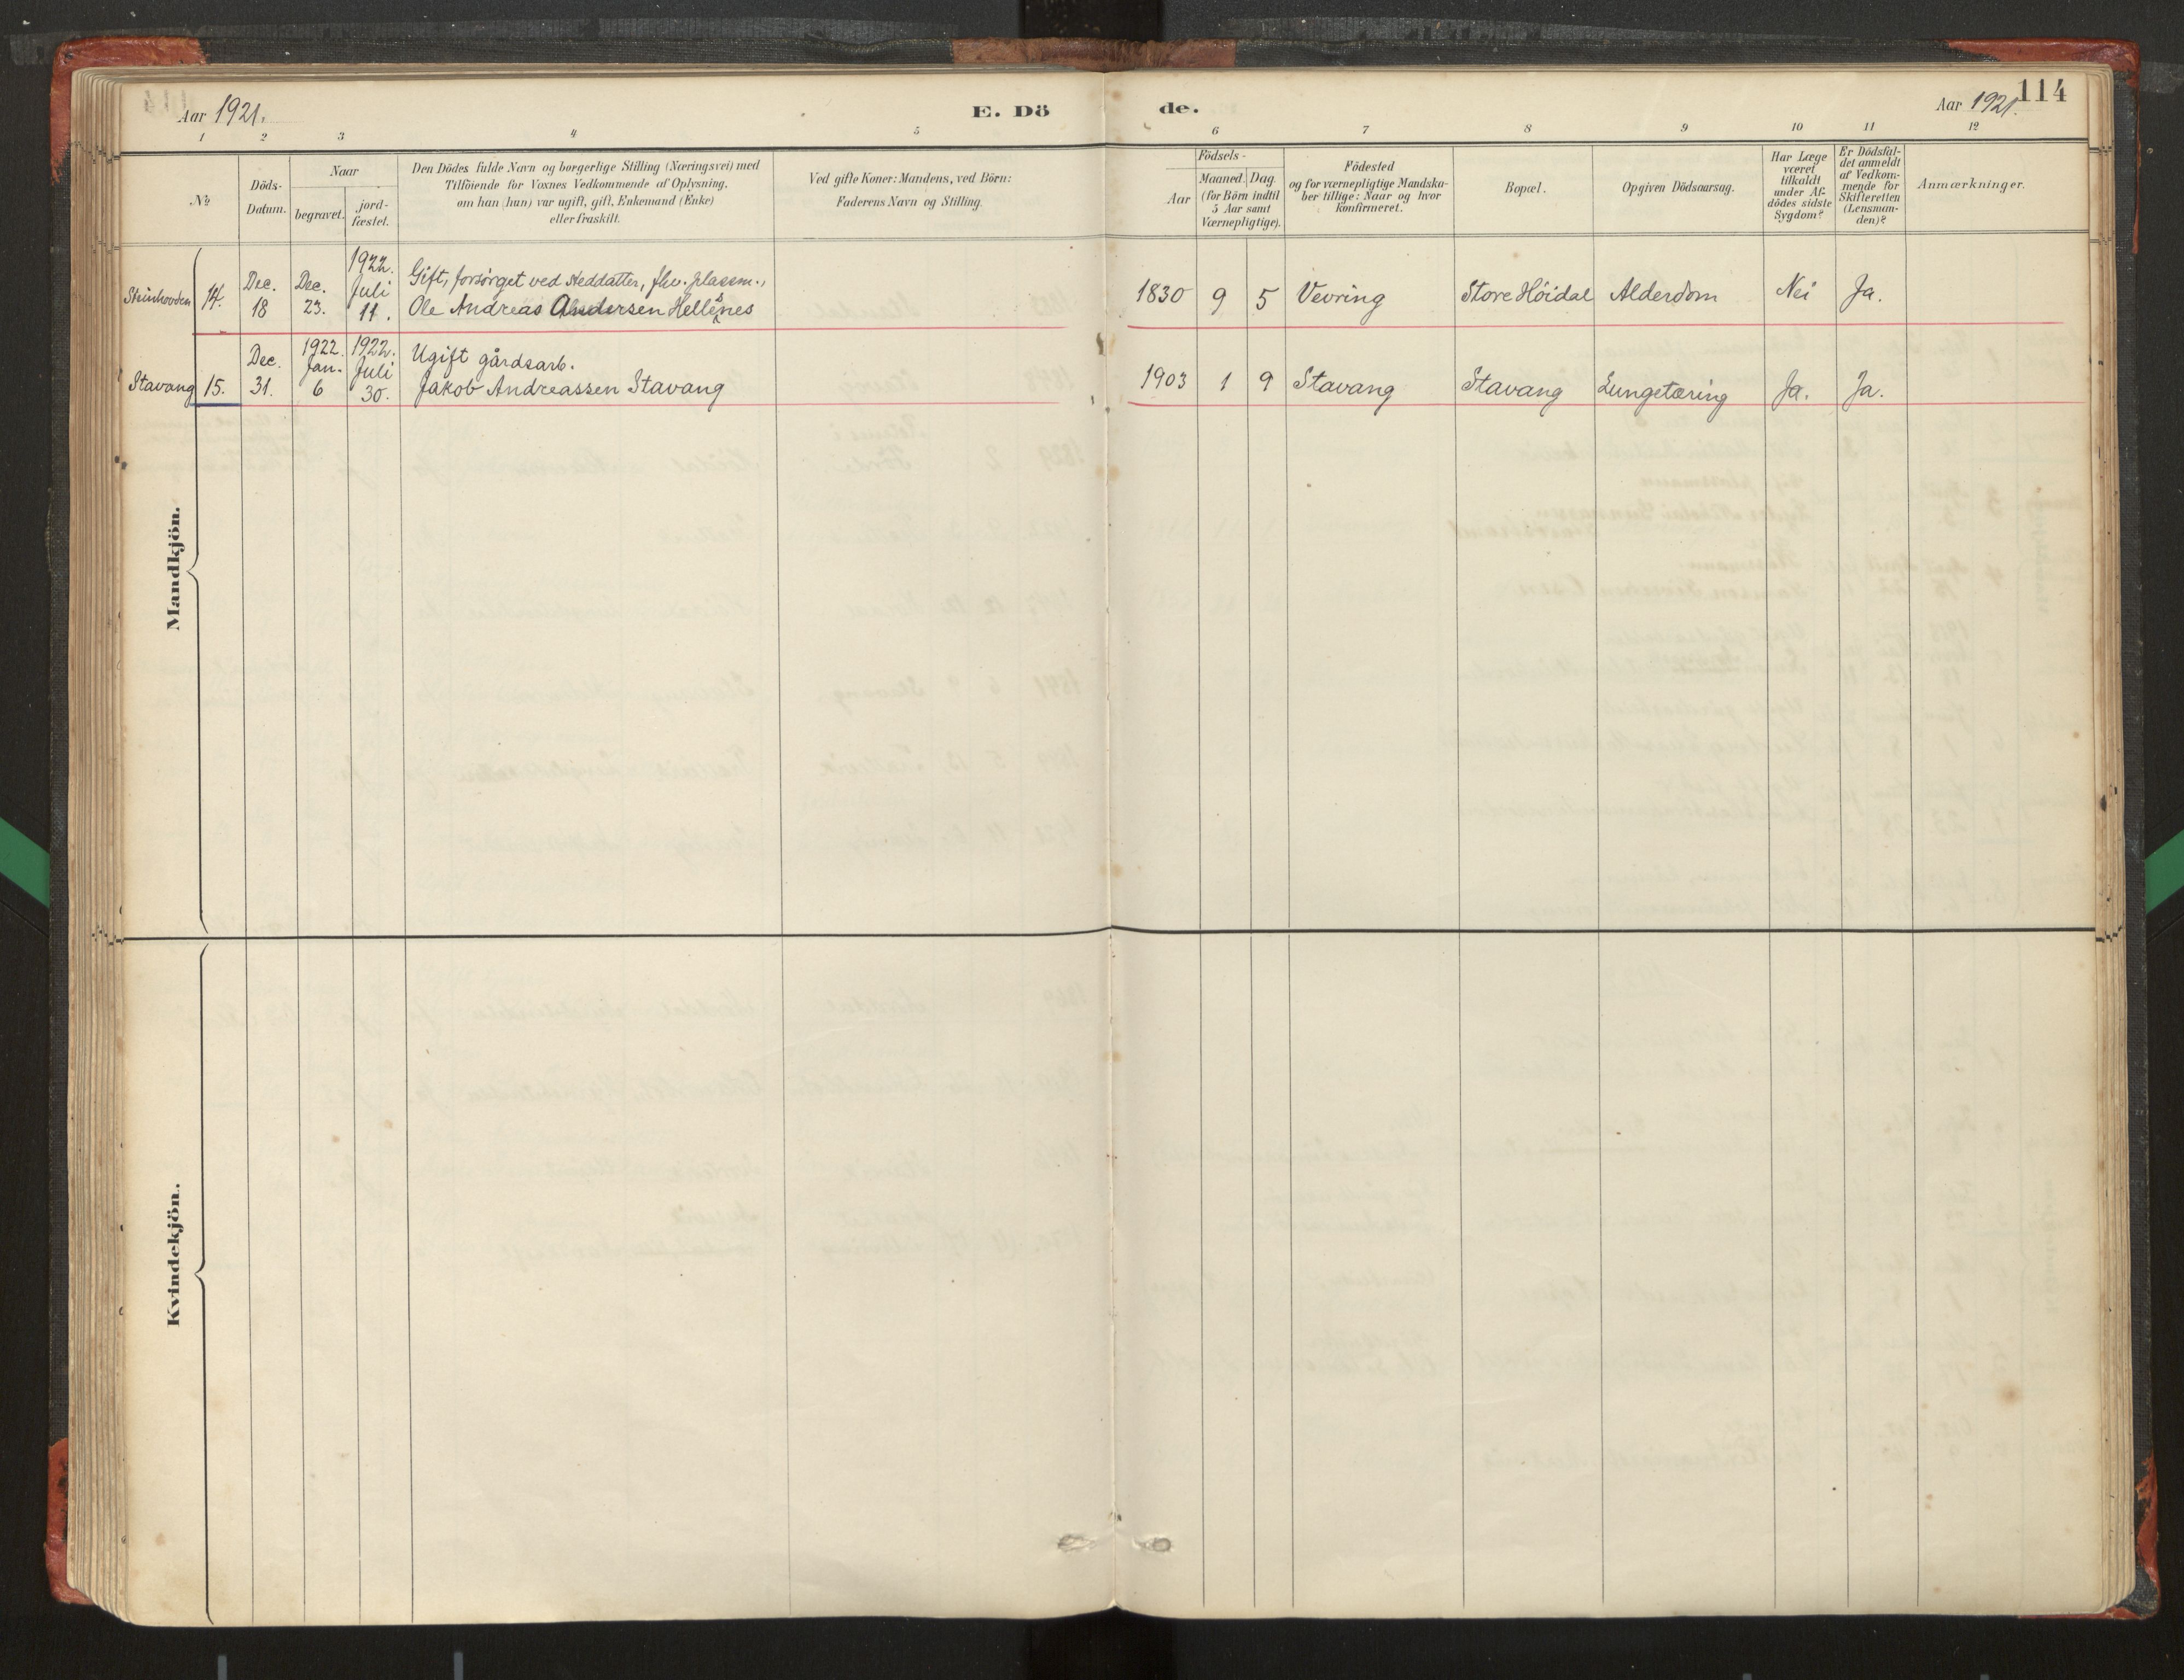 Aar 1921.
E. Dö
de.
Aar 1921.
114
1 2 3 4 5 6 7 8 9 10 11 12
№
Döds-
Datum.
Naar
begravet.
jord-
fæstet.
Den Dödes fulde Navn og borgerlige Stilling (Næringsvei) med
Tilföiende for Voxnes Vedkommende af Oplysning.
om han (hun) var ugift, gift, Enkemand (Enke)
eller fraskilt.
Ved gifte Koner: Mandens, ved Börn:
Faderens Navn og Stilling.
Födsels-
Aar
Maaned.
Dag
(for Börn indtil
5 Aar samt
Værnepligtige).
Födested
og for værnepligtige Mandska-
ber tillige: Naar og hvor
konfirmeret.
Bopæl.
Opgiven Dödsaarsag.
Har Læge
været
tilkaldt
under Af-
dödes sidste
Sygdom?
Er Dödsfal-
det anmeldt
af Vedkom-
mende for
Skifteretten
(Lensman-
den)?
Anmærkninger.
Mandkjön.
Steinhovden
14.
Dec.
18
Dec.
23.
1922.
Juli
11.
Gift, forsörget ved steddatter, fhv. plassm.,
Ole Andreas Andersen Hellenes
1830
9
5
Vevring
Store Höidal
Alderdom
Nei
Ja.
Stavang
15.
Dec.
31.
1922.
Jan.
6
1922.
Juli
30.
Ugift gårdsarb.
Jakob Andreassen Stavang
1903
1
9
Stavang
Stavang
Lungetæring
Ja.
Ja.
Kvindekjön.